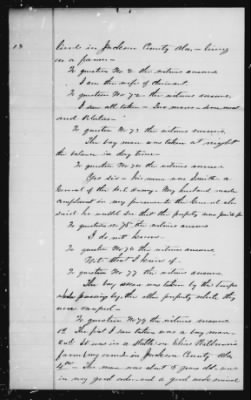 13
lived in Jackson County Ala, – living
on a farm –
To question No 2 the witness answers
I am the wife of claimant.
To question No 72 the witness answers,
I saw all taken – Two mares – some meat
and
To question No 73 the witness answers,
The bay mare was taken at night
the balance in day time –
To question No 74 the witness answers
Yes sir – his name was Smith a
General of the U.S. Army – My husband made
complaint in my presence to the General who
said he would see that the property was paid for
To question No 75 the witness answers
I do not know –
To question No 76 the witness answers
Not that I know of.
To question No 77 the witness answers
The bay mare was taken by the troops
passing by, the other property while they
were camped –
To question No 79 the witness answers
1st The first I saw taken was a bay mare –
It was in a stable on
farm in Jackson County Ala
The mare was about 5 years old and
in my good order and a good sized animal